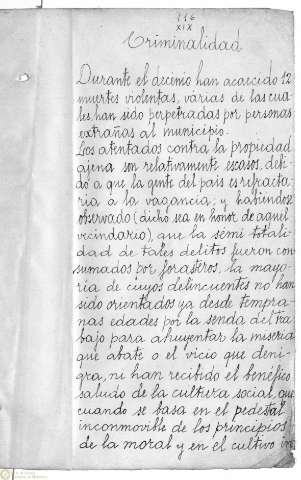 116
XIX
Criminalidad
Durante el decenio han acaecido 12
muertes violentas, varias de las cua-
les, han sido perpetradas por personas
extrañas al municipio.
Los atentados contra la propiedad
ajena son relativamente escasos, debi-
do a que la gente del pais es refracta-
ria a la vagancia; y habiéndose
observado (dicho sea en honor de aquel
vecindario), que la semi totali-
dad de tales delitos fueron con
sumados por forasteros, la mayo-
ria de cuyos delincuentes no han
sido orientados ya desde tempra-
nas edades por la senda del tra
bajo para ahuyentar la miseria
que abate o el vicio que deni-
gra, ni han recibido el benéfico
saludo de la cultura social, que
cuando se basa en el pedestal
inconmovible de los principios
de la moral y en el cultivo